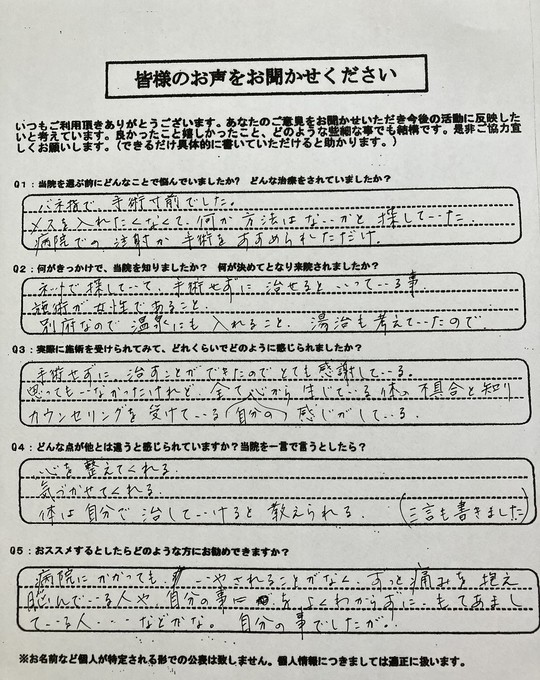 皆様のお声をお聞かせください
いつもご利用頂きありがとうございます。あなたのご意見をお聞かせいただき今後の活動に反映した
いと考えています。良かったこと嬉しかったこと、どのような些細な事でも結構です。是非ご協力宜
しくお願いします。(できるだけ具体的に書いていただけると助かります。)
Q1：当院を選ぶ前にどんなことで悩んでいましたか? どんな治療をされていましたか?
バネ指で、手術寸前でした。
メスを入れたくなくて、何か方法はないかと探していた。
病院での注射か手術をすすめられただけ。
Q2：何がきっかけで、当院を知りましたか? 何が決めてとなり来院されましたか?
ネットで探していて、手術せずに治せるといっている事。
施術が女性であること。
別府なので温泉にも入れること、湯治も考えていたので
Q3：実際に施術を受けられてみて、どれくらいでどのように感じられましたか?
手術せずに治すことができたのでとても感謝している。
思ってもいなかったけれど、全て心から生じている体の不具合と知り
カウンセリングを受けている(自分の)感じがしている。
Q4：どんな点が他とは違うと感じられていますか?当院を一言で言うとしたら?
心を整えてくれる。
気づかせてくれる。
体は自分で治していけると教えられる。 (三言も書きました)
Q5：おススメするとしたらどのような方にお勧めできますか?
病院にかかっても、いやされることがなく、ずっと痛みを抱え
悩んでいる人や自分の事をよくわからずにもてあまし
ている人・・・などかな。自分の事でしたが。
※お名前など個人が特定される形での公表は致しません。個人情報につきましては適正に扱います。